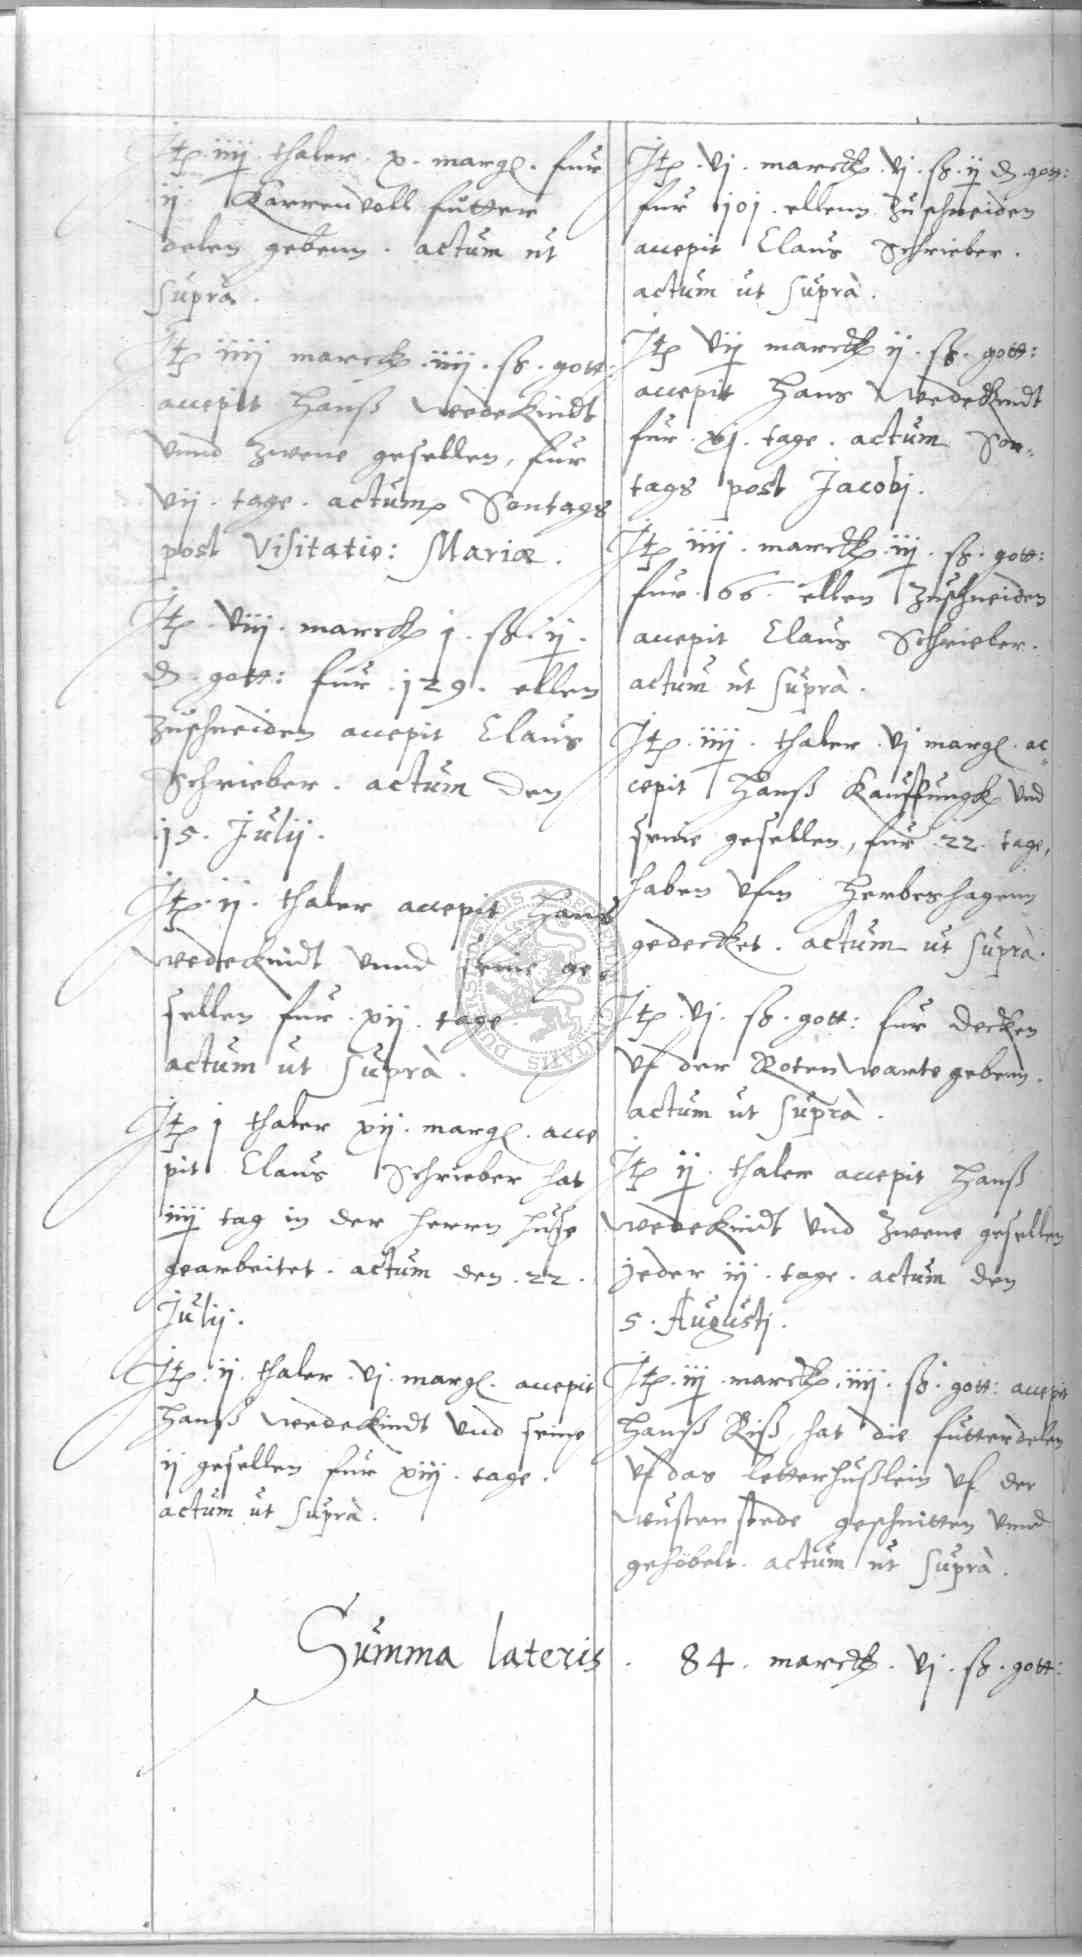 Itē iiij thaler x margl. fur
ij Karrenvoll futter
delen gebenn. actum ut
supra.
Itē iiij marck iiij ß. gott:
accepit Hanß Wedekindt
vnnd zwene gesellen, fur
vij. tage. actum Sontags
post Visitatio: Mariæ.
Itē viij. marck j. ß. ij.
d. gott: fur 129. ellen
zuschneiden accepit Claus
Schrieber. actum den
15. Julij.
Itē ij. thaler accepit Hans
Wedekindt vnnd seine ge-
sellen fur xij. tage.
actum ut suprà.
Itē j thaler xij. margl. acce
pit Claus Schrieber hat
iiij tag in der herrn huse
gearbeitet. actum den 22.
Julij.
Itē ij. thaler vj. margl. accepit
Hanß Wedekindt vnd seine
ij gesellen fur xiij. tage.
actum ut suprà.
Itē vj. marck vj. ß. ij d. gott:
fur 101. ellenn zuschneiden
accepit Claus Schrieber.
actum ut suprà.
Itē vij marck ij. ß. gott:
accepit Hans Wedekindt
fur xj. tage. actum Son-
tags post Jacobj.
Itē iiij. marck iij. ß. gott:
fur 66. ellen zuschneiden
accepit Claus Schrieber.
actum ut suprà.
Itē iiij. thaler vj margl. ac-
cepit Hanß Kauffungk vnd
seine gesellen, fur 22 tage,
haben vfm Herbeshagenn
gedecket. actum ut suprà.
Itē vj. ß. gott: fur decken
vf der Roten warte gebenn.
actum ut suprà.
Itē ij. thaler accepit Hanß
Wedekindt vnd zwene gesellen
jeder iij. tage. actum den
5. Augustj.
Itē iij. marck iiij. ß. gott: accepit
Hanß Riß, hat die futterdelen
vf das letterhußlein vf der
wusten stede geschnitten vnnd
gehöbelt. actum ut suprà.
Summa lateris. 84. marck. vj. ß. gott: